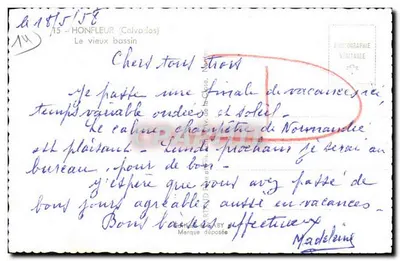 le 18/5/58
14
15 - HONFLEUR (Calvados)
Le vieux bassin
Chers tous trois
Je passe une finale de vacances ici,
temps variable ondées et soleil.
Le calme champêtre de Normandie
est plaisant. Lundi prochain je serai au
bureau, pour de bon.
J'espère que vous avez passé de
bons jours agréables aussi en vacances.
Bons baisers affectueux
Madeleine
Marque déposée